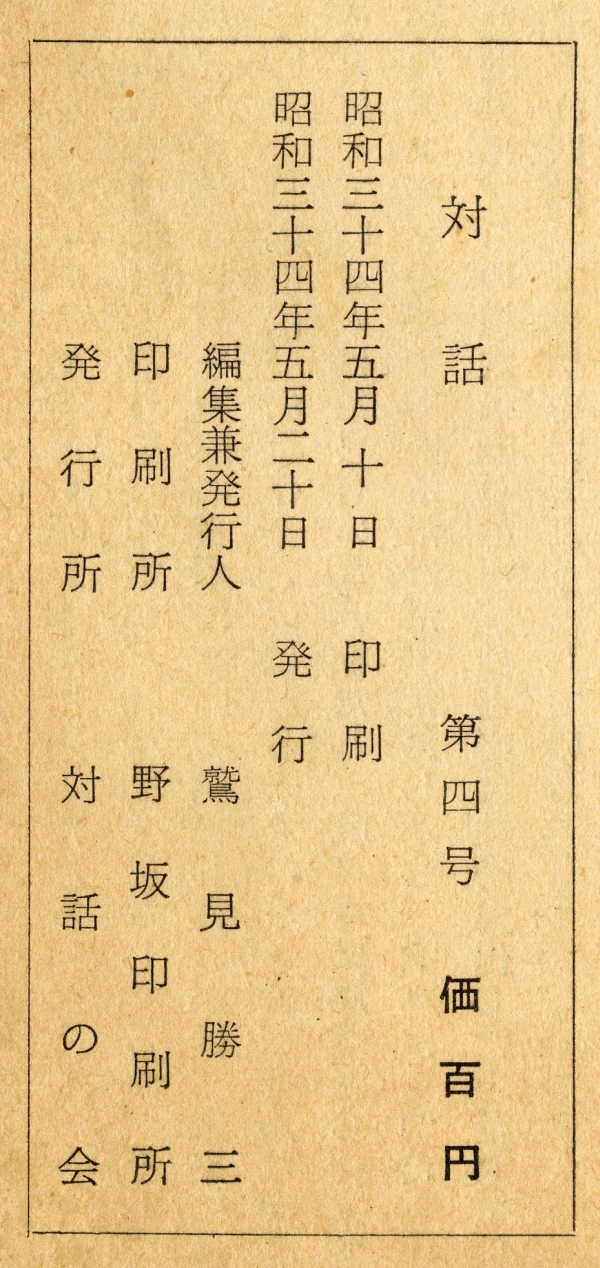 対話　第四号　価百円
昭和三十四年五月十日　印刷
昭和三十四年五月二十日　発行
編集兼発行人　鷲見勝三
印刷所　野坂印刷所
発行所　対話の会